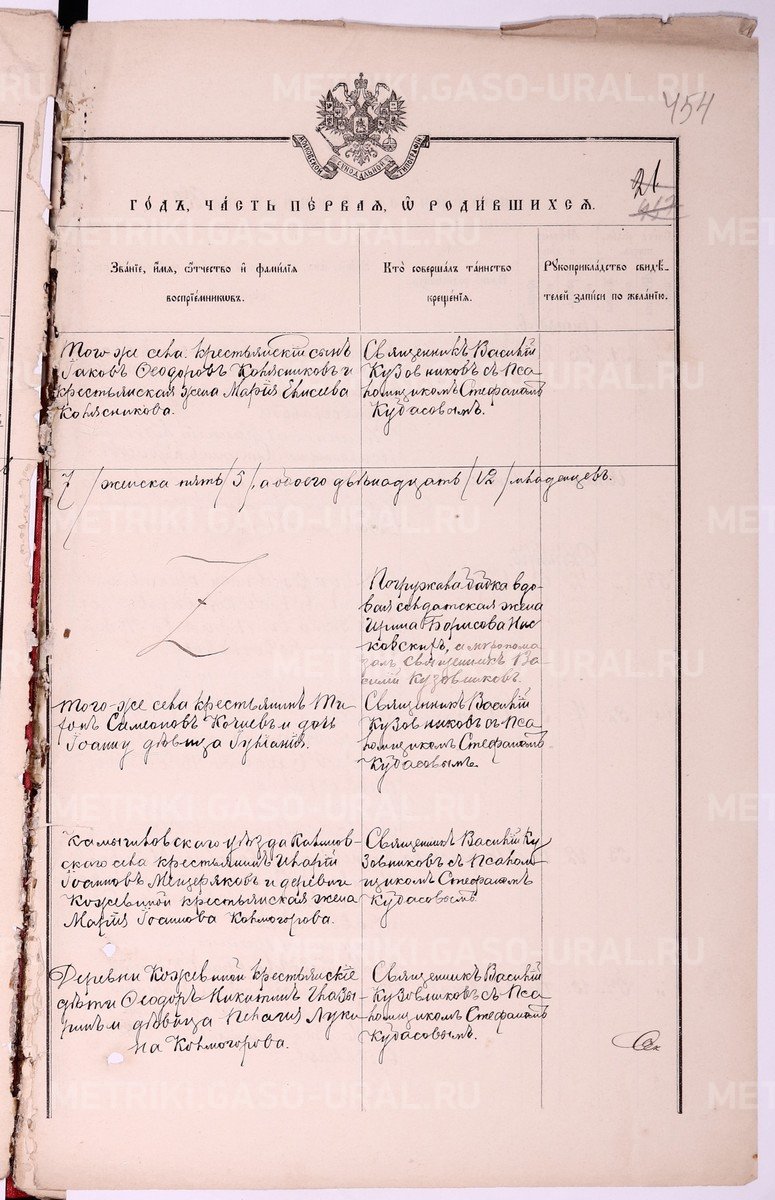 METRIKI.GASO-URAL.RU
454
МОСКОВСКОЙ СУНОДАЛЬНОЙ ТИПОГРАФІИ
21
ГО́ДЪ, ЧА́СТЬ ПЕ́РВАѦ, Ѡ҆ РОДИ́ВШИХСѦ.
Зва́нїе, и҆́мѧ, ѻ҆́тчество и҆ фами́лїѧ
воспрїе́мниковъ.
Кто̀ соверша́лъ та́инство
креще́нїѧ.
Рꙋкоприкла́дство свидѣ́-
телей за́писи по жела́нїю.
Того-же села. крестьянскій сынъ
Іаковъ Ѳеодоровъ Колясниковъ и
крестьянская жена Марія Елисеева
Колясникова.
Священникъ Василій
Кузовниковъ съ Пса-
ломщикомъ Стефаномъ
Кудасовымъ.
7 / женска пять / 5 /, а обоего двѣнадцать / 12 / младенцевъ.
Погружала бабка вдо-
вая солдатская жена
Ирина Борисова
а мѵропома-
залъ Священникъ Ва-
силій Кузовниковъ.
Того-же села крестьянинъ
Симеоновъ и дочь
дѣвица
Священникъ Василій
Кузовниковъ съ Пса-
ломщикомъ Стефаномъ
Кудасовымъ.
Камышловскаго уѣзда
скаго села крестьянинъ Иларій
Іоанновъ Мещеряковъ и деревни
Кожевиной крестьянская жена
Марія Іоаннова Колмогорова.
Священникъ Василій Ку-
зовниковъ съ Псалом-
щикомъ Стефаномъ
Кудасовымъ.
Деревни Кожевиной крестьянскіе
дѣти Ѳеодоръ Никитинъ
и дѣвица Пелагія Луки-
на Колмогорова.
Священникъ Василій
Кузовниковъ съ Пса-
ломщикомъ Стефаномъ
Кудасовымъ.